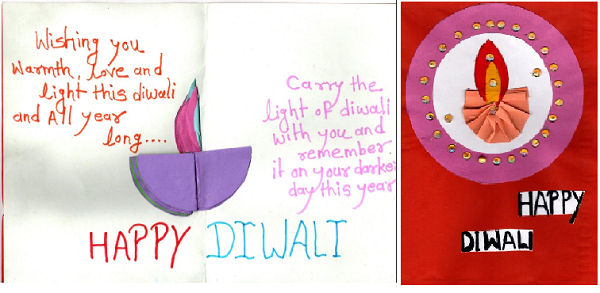 Wishing you
warmth, love and
light this diwali
and All year
long....
Carry the
light of diwali
with you and
remember
it on your darkes
day this year
HAPPY DIWALI
HAPPY
DIWALI